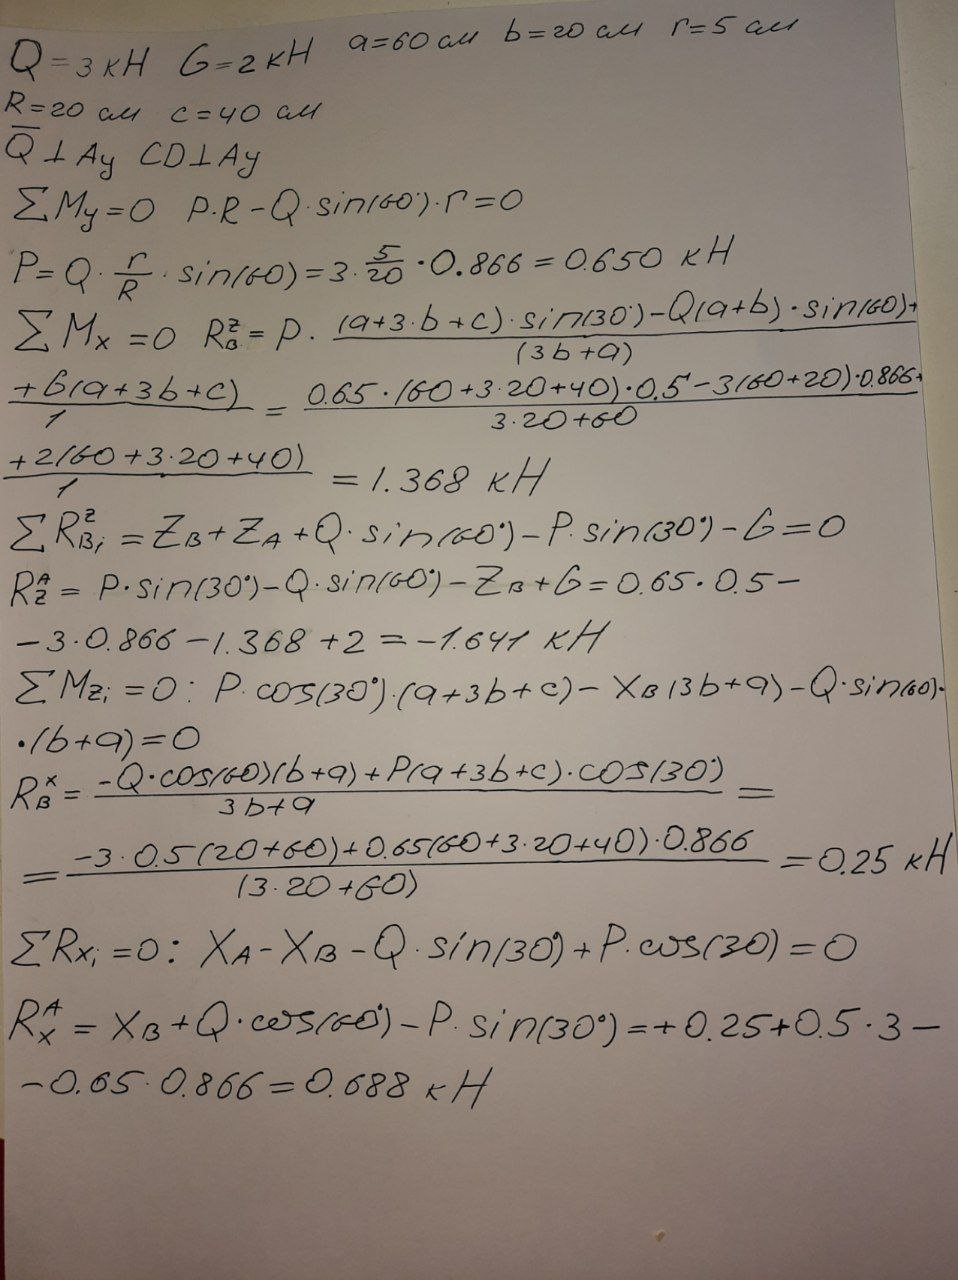 Q = 3 кН G = 2 кН a = 60 см b = 20 см r = 5 см
R = 20 см c = 40 см
Q̅ ⊥ Ay CD ⊥ Ay
∑My = 0 P·R − Q·sin(60°)·r = 0
P = Q · r/R · sin(60) = 3 · 5/20 · 0.866 = 0.650 кН
∑Mx = 0 R_B^z = P · (a+3·b+c)·sin(30°) − Q(a+b)·sin(60)+ / (3b+a)
+G(a+3b+c) / 1 = 0.65·(60+3·20+40)·0.5 − 3(60+20)·0.866+ / 3·20+60
+2(60+3·20+40) / 1 = 1.368 кН
∑R_Bi^z = Z_B + Z_A + Q·sin(60°) − P·sin(30°) − G = 0
R_z^A = P·sin(30°) − Q·sin(60°) − Z_B + G = 0.65·0.5 −
− 3·0.866 − 1.368 + 2 = −1.641 кН
∑Mzi = 0: P·cos(30°)·(a+3b+c) − X_B(3b+a) − Q·sin(60)·
·(b+a) = 0
R_B^x = −Q·cos(60)(b+a) + P(a+3b+c)·cos(30°) / 3b+a =
= −3·0.5(20+60)+0.65(60+3·20+40)·0.866 / (3·20+60) = 0.25 кН
∑Rxi = 0: X_A − X_B − Q·sin(30°) + P·cos(30) = 0
R_x^A = X_B + Q·cos(60°) − P·sin(30°) = +0.25+0.5·3 −
− 0.65·0.866 = 0.688 кН